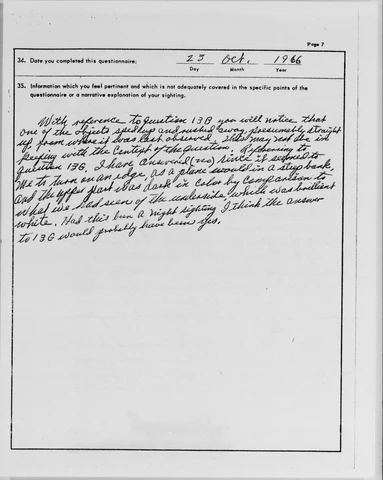 Page 7
34. Date you completed this questionnaire: 23 Oct. 1966
Day Month Year
35. Information which you feel pertinent and which is not adequately covered in the specific points of the
questionnaire or a narrative explanation of your sighting.
With reference to question 13B you will notice that
one of the objects sped up and rushed away, presumably straight
up from where it was last observed. This may not be in
keeping with the context of the question. Referring to
question 13G, I have answered (no) since it seemed to
me to turn on an edge, as a plane would in a steep bank,
and the upper part was dark in color by comparison to
what we had seen of the underside, which was brilliant
white. Had this been a night sighting I think the answer
to 13G would probably have been yes.